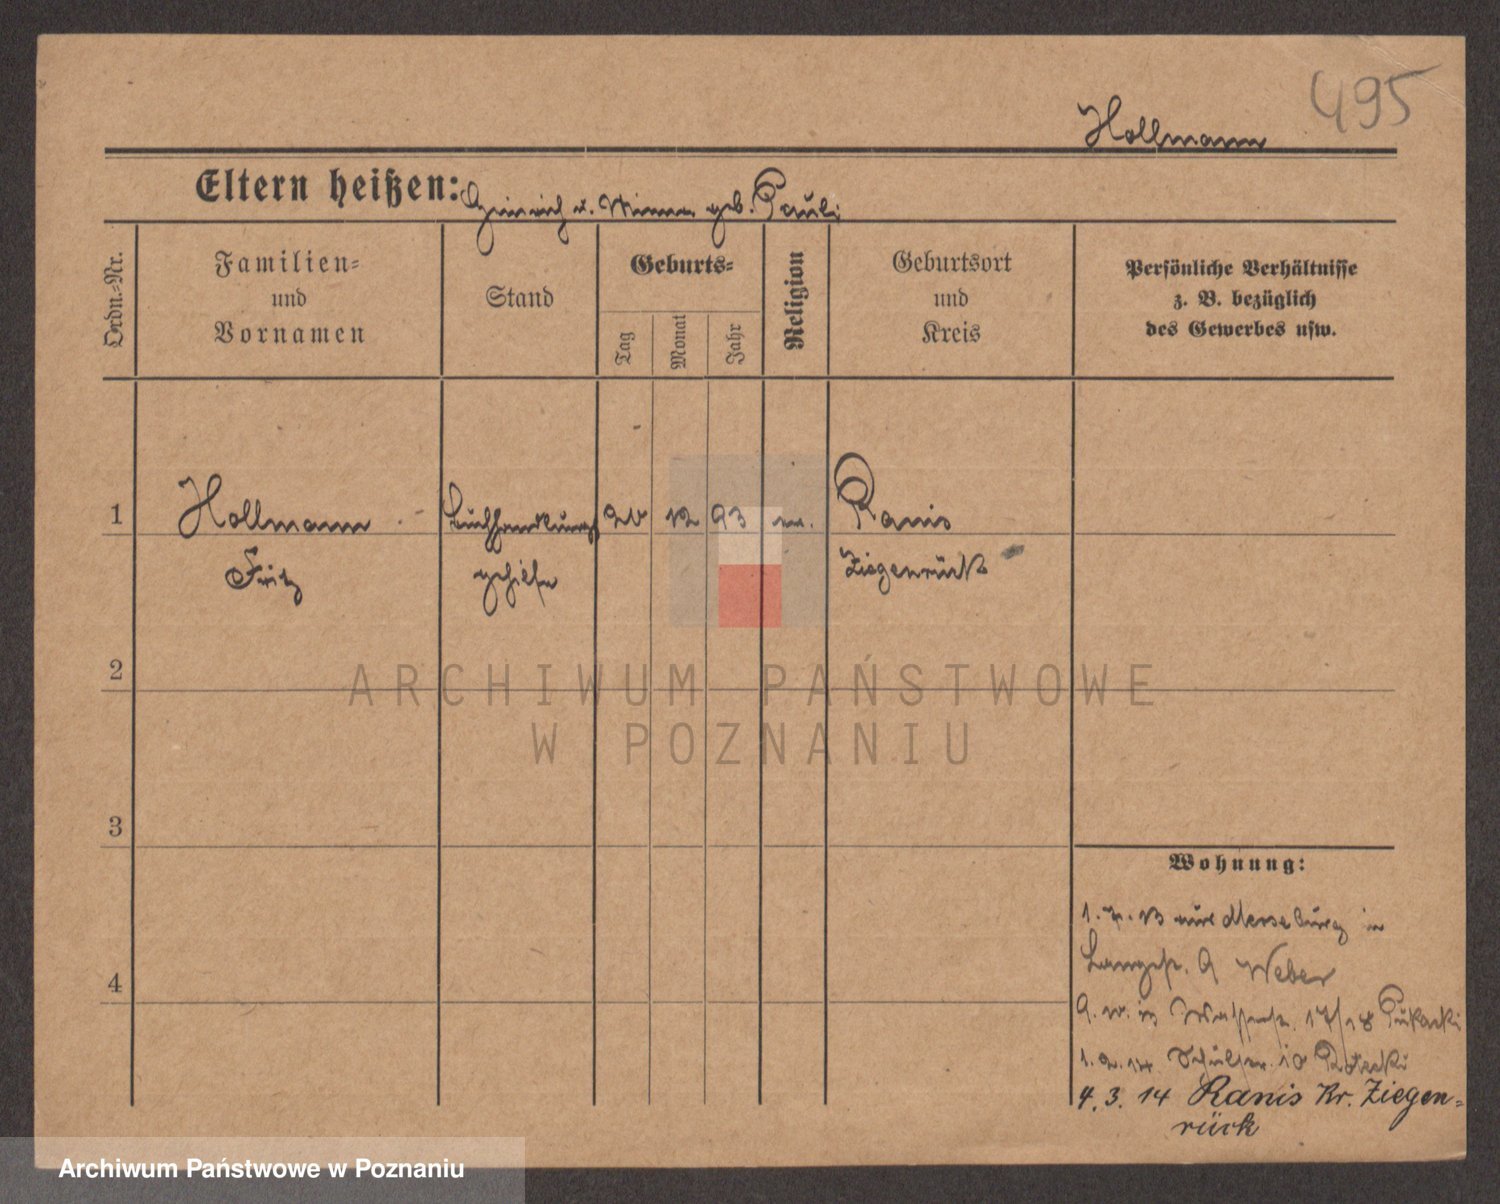 495
Hollmann
Eltern heißen: Heinrich u. Minna geb. Pauli
Ordn.-Nr.
Familien-
und
Vornamen
Stand
Geburts-
Tag
Monat
Jahr
Religion
Geburtsort
und
Kreis
Persönliche Verhältnisse
z. B. bezüglich
des Gewerbes usw.
1 Hollmann Buchhandlungs 26 12 93 Ranis
Fritz gehilfe Ziegenrück
2
ARCHIWUM PAŃSTWOWE
W POZNANIU
3
Wohnung:
1. 7. 13 aus Merseburg in
Langestr. 9 Weber
4
17/18
1. 2. 14 10
4. 3. 14 Ranis Kr. Ziegen-
rück
Archiwum Państwowe w Poznaniu